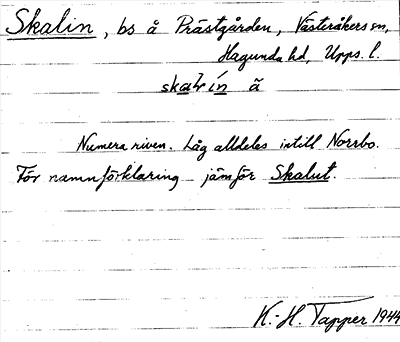 Skalin, bs å Prästgården, Västeråkers sn,
Hagunda hd, Upps. l.
skalín ã
Numera riven. Låg alldeles intill Norrbo.
För namnförklaring jämför Skalut.
K.-H. Tapper 1944